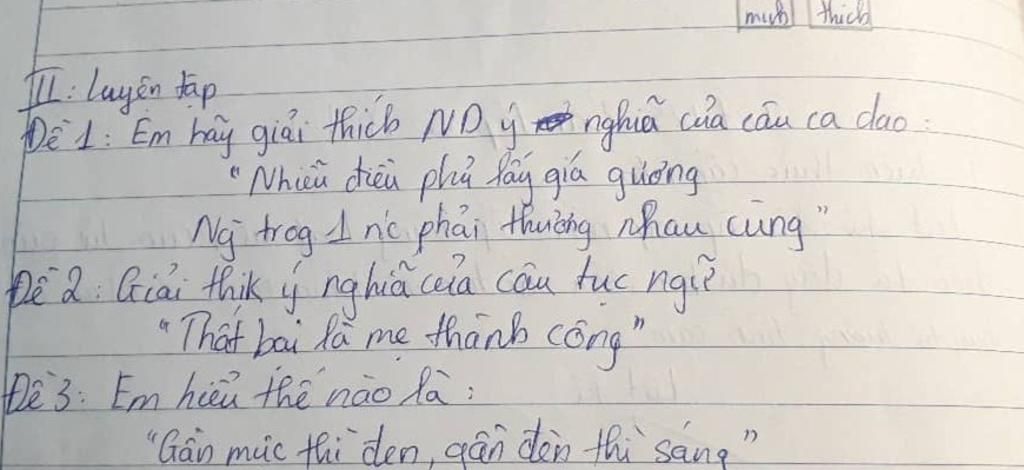 minh thích
III: Luyện tập
Đề 1: Em hãy giải thích ND ý nghĩa của câu ca dao:
"Nhiễu điều phủ lấy giá gương
Ng trog 1 nc phải thương nhau cùng"
Đề 2: Giải thik ý nghĩa của câu tục ngữ
"Thất bại là mẹ thành công"
Đề 3: Em hiểu thế nào là:
"Gần mực thì đen, gần đèn thì sáng"